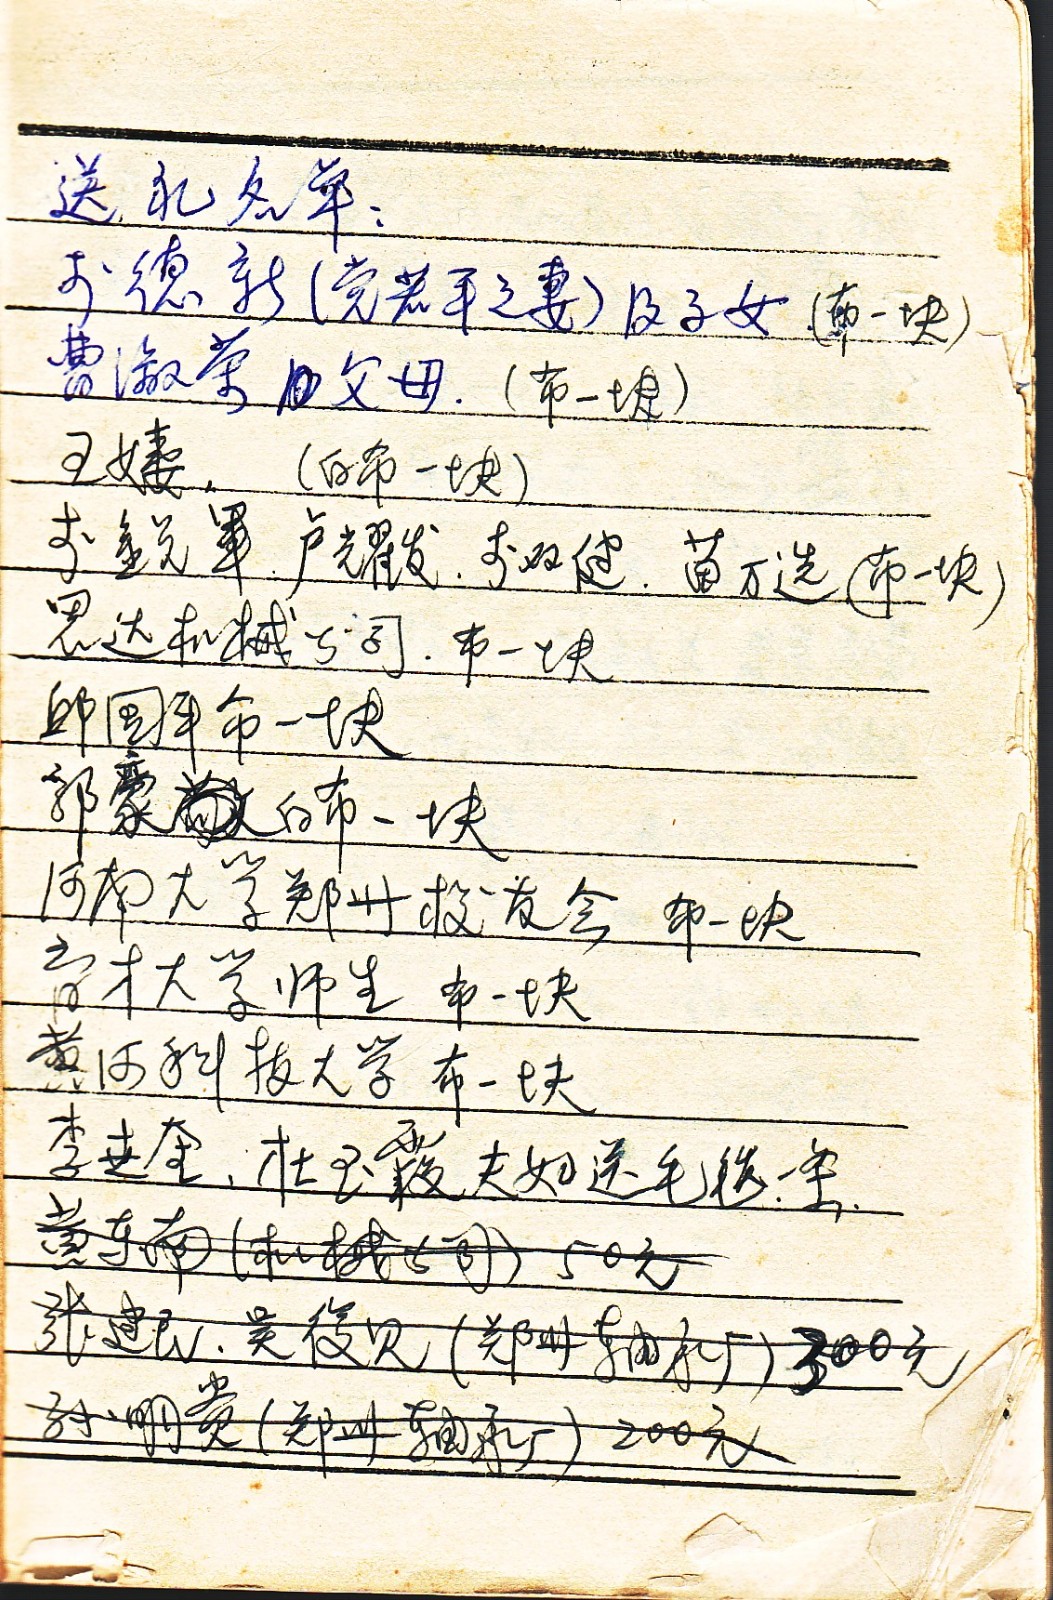 送礼名单：
德新（党若平之妻）及子女（布一块）
曹淑荣 父母．（布一块）
王 （白布一块）
锐军．卢耀发．双健．苗万选（布一块）
思达机械公司．布一块
邱国军 布一块
郭豪 白布一块
河南大学郑州校友会 布一块
育才大学师生 布一块
黄河科技大学 布一块
李世奎、杜玉霞夫妇送毛毯一条．
黄东南（机械公司）50元
张建民．吴俊贝（郑州轴承厂）300元
孙明贵（郑州轴承厂）200元